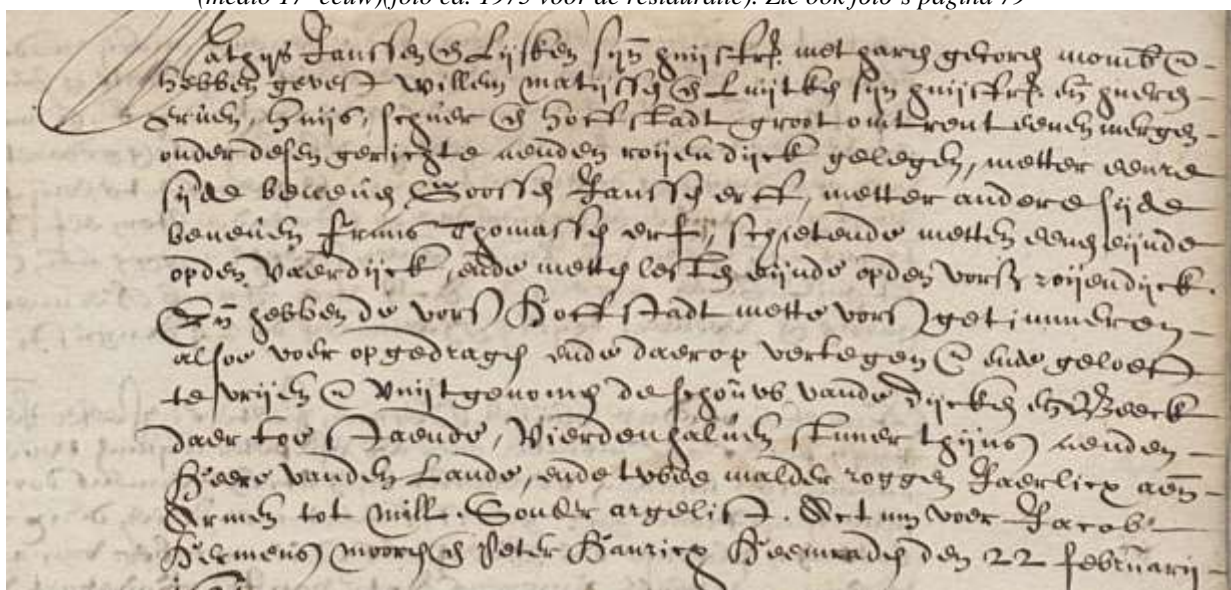 (medio 17e eeuw)(foto ca. 1975 voor de restauratie). Zie ook foto's pagina 79
athijs Janssen en Lijsken sijn huijsfr. met haren gecoren momb. en
hebben gevest Willem Matijssen en Luijtken sijn huijsfr. en hueren
erven, huijs, schuer en hoffstadt groot omtrent eenen mergen
onder desen gerichte aenden roijendijck gelegen, metter eenre
sijde beneven Goossen Janssen erff, metter andere sijde
beneven Frans Thomassen erf, schietende metten eenen eijnde
opden Vaerdijck, ende metten lesten eijnde opden vors roijendijck.
En hebben de vors hoffstadt mette vors getimmeren
alsoe voer opgedragen ende daerop vertegen en ende geloeft
te vrijen en vuijtgenomen de vande dijcken en Beeck
daer toe staende, Vierdenhalven stuver thijns aenden
Heere vanden Lande, ende twee malder roggen Jaerlicx aen
Armen tot Mill. Sonder argelist. Actum voer Jacob
Hermens en Peter Hanricx Heemraden den 22 februarij